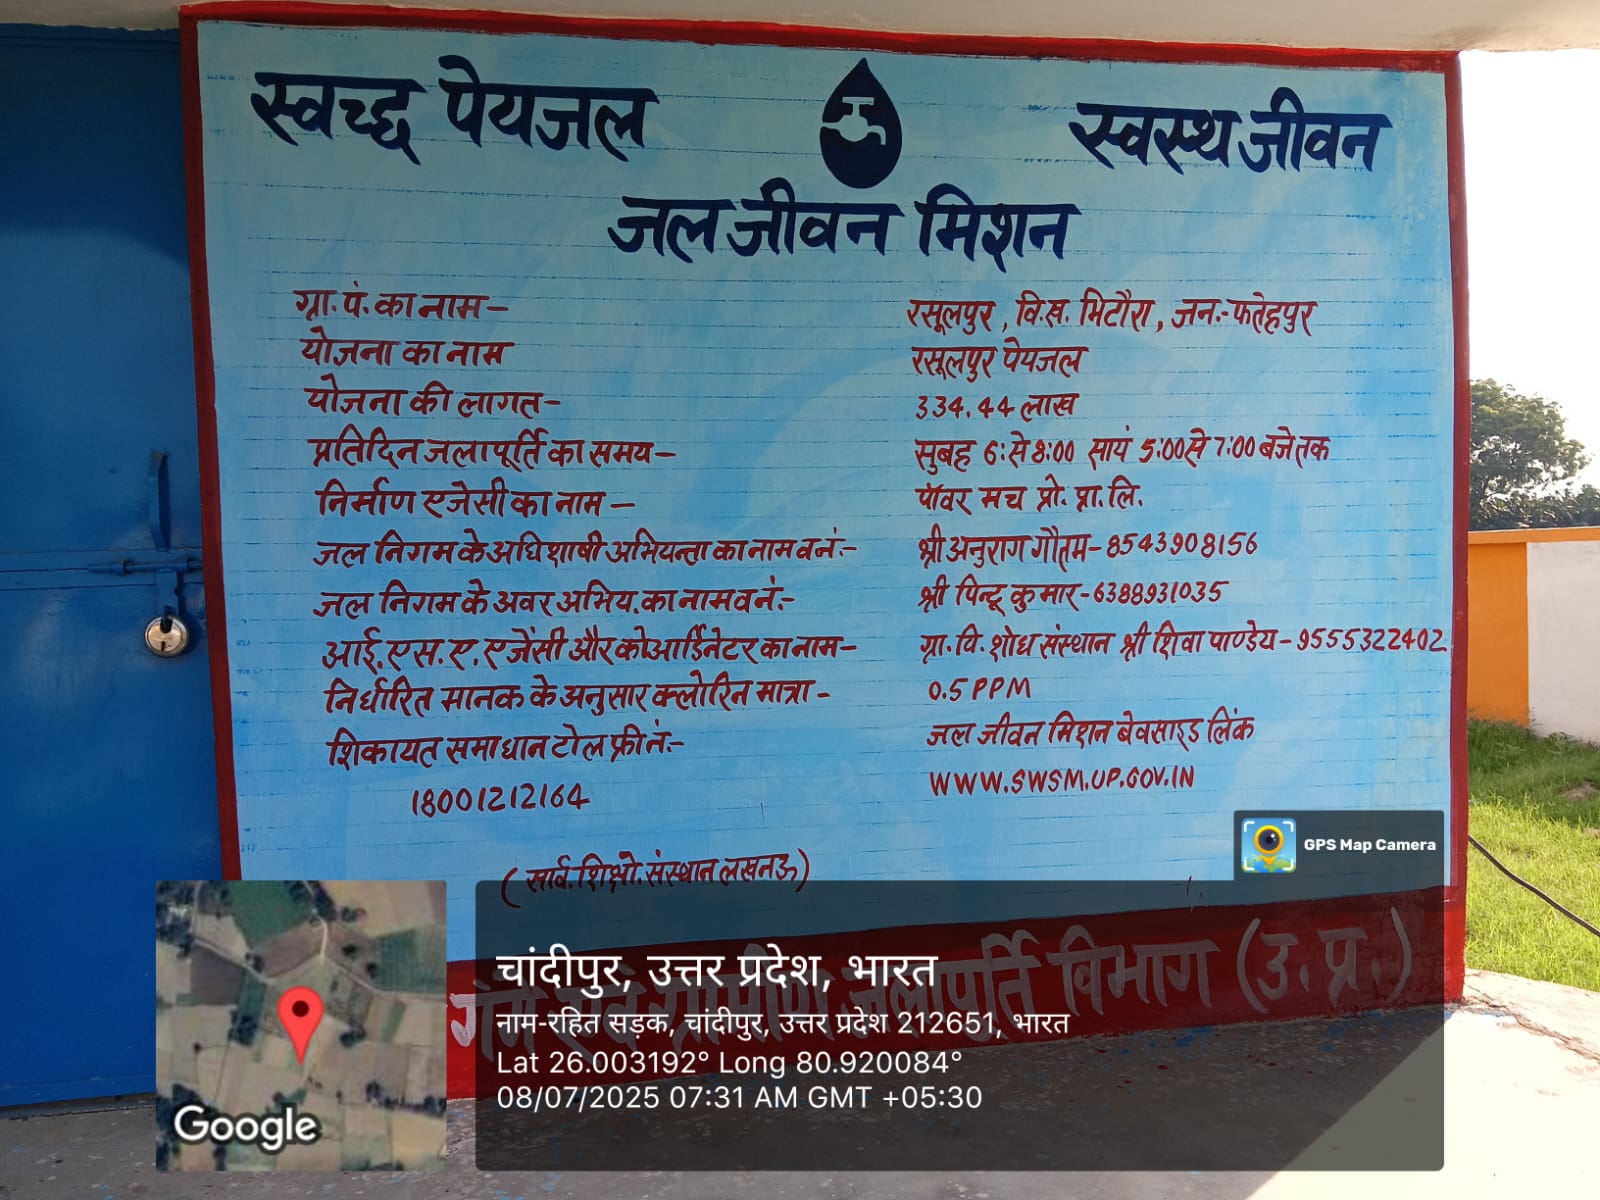 स्वच्छ पेयजल स्वस्थ जीवन
जल जीवन मिशन
ग्रा.पं. का नाम- रसूलपुर, वि.ख. भिटौरा, जन.-फतेहपुर
योजना का नाम रसूलपुर पेयजल
योजना की लागत- 334.44 लाख
प्रतिदिन जलापूर्ति का समय- सुबह 6:से 8:00 सायं 5:00 से 7:00 बजे तक
निर्माण एजेसी का नाम- पॉवर मच प्रो. प्रा.लि.
जल निगम के अधिशाषी अभियन्ता का नाम व नं:- श्री अनुराग गौतम-8543908156
जल निगम के अवर अभिय. का नाम व नं:- श्री पिन्टू कुमार-6388931035
आई.एस.ए.एजेंसी और कोआर्डिनेटर का नाम- ग्रा.वि.शोध संस्थान श्री शिवा पाण्डेय-9555322402
निर्धारित मानक के अनुसार क्लोरिन मात्रा- 0.5 PPM
शिकायत समाधान टोल फ्री नं:- जल जीवन मिशन बेवसाइड लिंक
18001212164 WWW.SWSM.UP.GOV.IN
(सार्व.शिक्षो.संस्थान लखनऊ)
ग्रामीण जलापूर्ति विभाग (उ.प्र.)
GPS Map Camera
चांदीपुर, उत्तर प्रदेश, भारत
नाम-रहित सड़क, चांदीपुर, उत्तर प्रदेश 212651, भारत
Lat 26.003192° Long 80.920084°
08/07/2025 07:31 AM GMT +05:30
Google